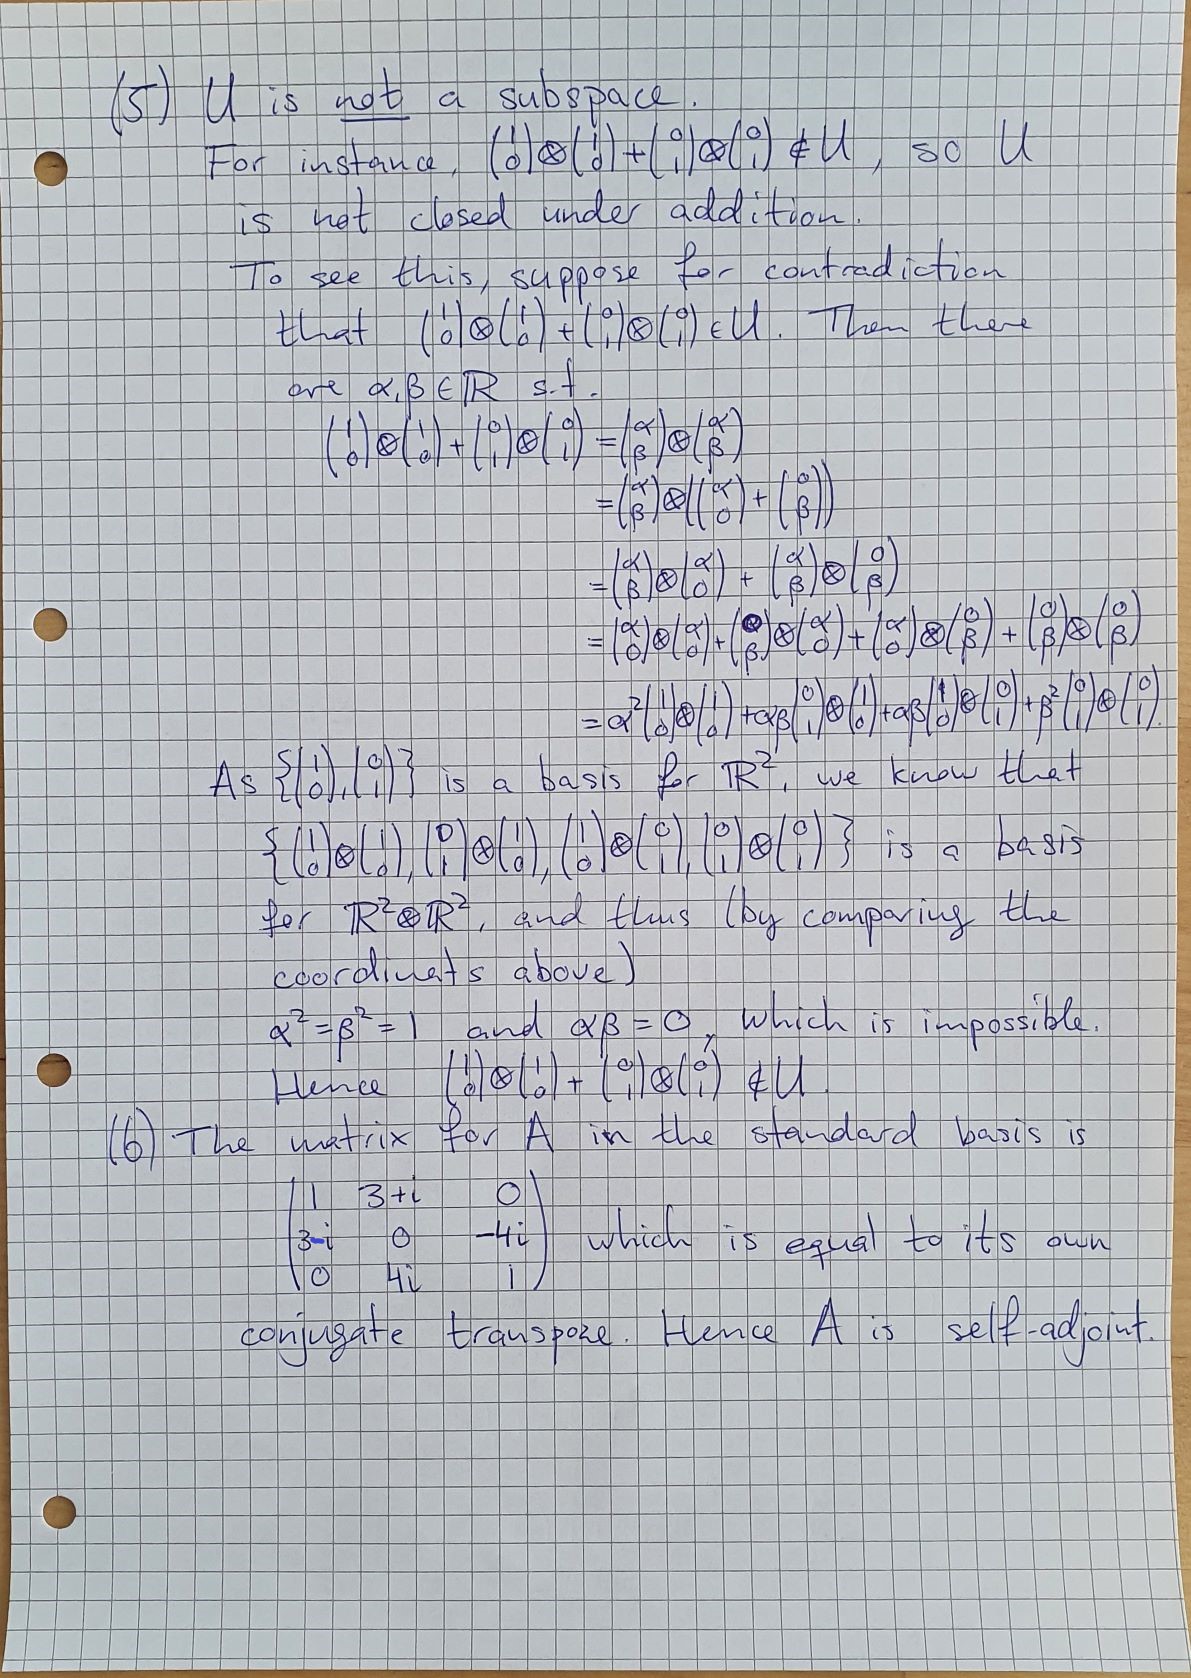 (5) U is not a subspace.
For instance, (1 0)⊗(1 0)+(0 1)⊗(0 1)∉U, so U
is not closed under addition.
To see this, suppose for contradiction
that (1 0)⊗(1 0)+(0 1)⊗(0 1)∈U. Then there
are α,β∈ℝ s.t.
(1 0)⊗(1 0)+(0 1)⊗(0 1)=(α β)⊗(α β)
=(α β)⊗((α 0)+(0 β))
=(α β)⊗(α 0)+(α β)⊗(0 β)
=(α 0)⊗(α 0)+(0 β)⊗(α 0)+(α 0)⊗(0 β)+(0 β)⊗(0 β)
=α²(1 0)⊗(1 0)+αβ(0 1)⊗(1 0)+αβ(1 0)⊗(0 1)+β²(0 1)⊗(0 1).
As {(1 0),(0 1)} is a basis for ℝ², we know that
{(1 0)⊗(1 0),(0 1)⊗(1 0),(1 0)⊗(0 1),(0 1)⊗(0 1)} is a basis
for ℝ²⊗ℝ², and thus (by comparing the
coordinats above)
α²=β²=1 and αβ=0, which is impossible.
Hence (1 0)⊗(1 0)+(0 1)⊗(0 1)∉U.
(6) The matrix for A in the standard basis is
(1 3+i 0
3-i 0 -4i
0 4i 1) which is equal to its own
conjugate transpose. Hence A is self-adjoint.